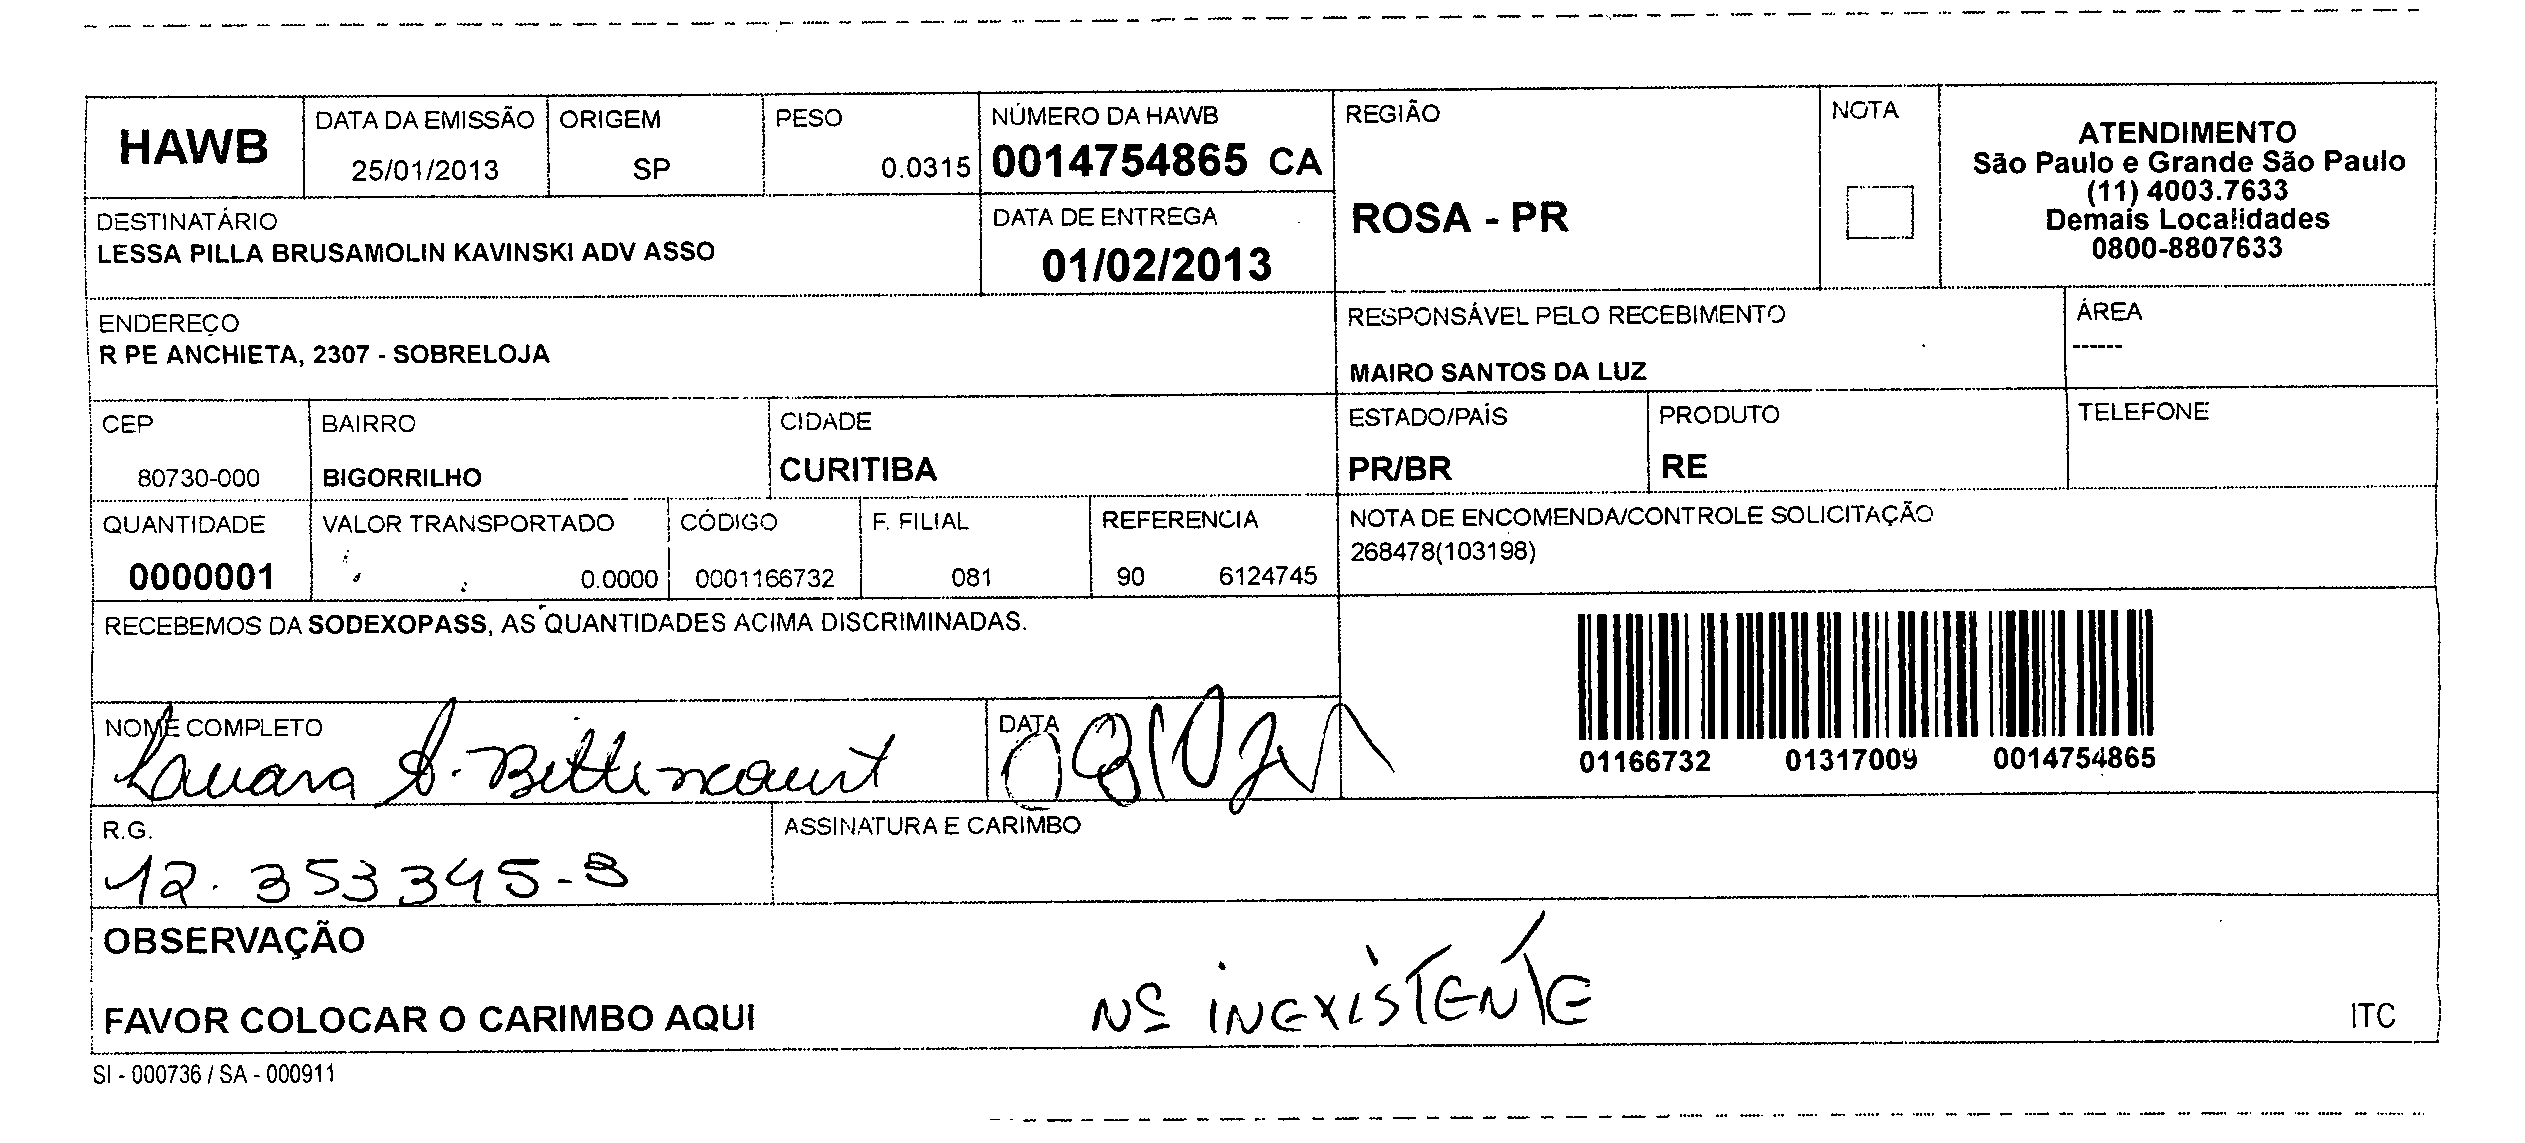 HAWB
DATA DA EMISSÃO
25/01/2013
ORIGEM
SP
PESO
0.0315
NÚMERO DA HAWB
0014754865 CA
REGIÃO
ROSA - PR
NOTA
ATENDIMENTO
São Paulo e Grande São Paulo
(11) 4003.7633
Demais Localidades
0800-8807633
DESTINATÁRIO
LESSA PILLA BRUSAMOLIN KAVINSKI ADV ASSO
DATA DE ENTREGA
01/02/2013
ENDEREÇO
R PE ANCHIETA, 2307 - SOBRELOJA
RESPONSÁVEL PELO RECEBIMENTO
MAIRO SANTOS DA LUZ
ÁREA
------
CEP
80730-000
BAIRRO
BIGORRILHO
CIDADE
CURITIBA
ESTADO/PAÍS
PR/BR
PRODUTO
RE
TELEFONE
QUANTIDADE
0000001
VALOR TRANSPORTADO
0.0000
CÓDIGO
0001166732
F. FILIAL
081
REFERENCIA
90 6124745
NOTA DE ENCOMENDA/CONTROLE SOLICITAÇÃO
268478(103198)
RECEBEMOS DA SODEXOPASS, AS QUANTIDADES ACIMA DISCRIMINADAS.
01166732 01317009 0014754865
NOME COMPLETO
A. Bittencourt
DATA
R.G.
12.353345-3
ASSINATURA E CARIMBO
OBSERVAÇÃO
FAVOR COLOCAR O CARIMBO AQUI
Nº INEXISTENTE
ITC
SI - 000736 / SA - 000911